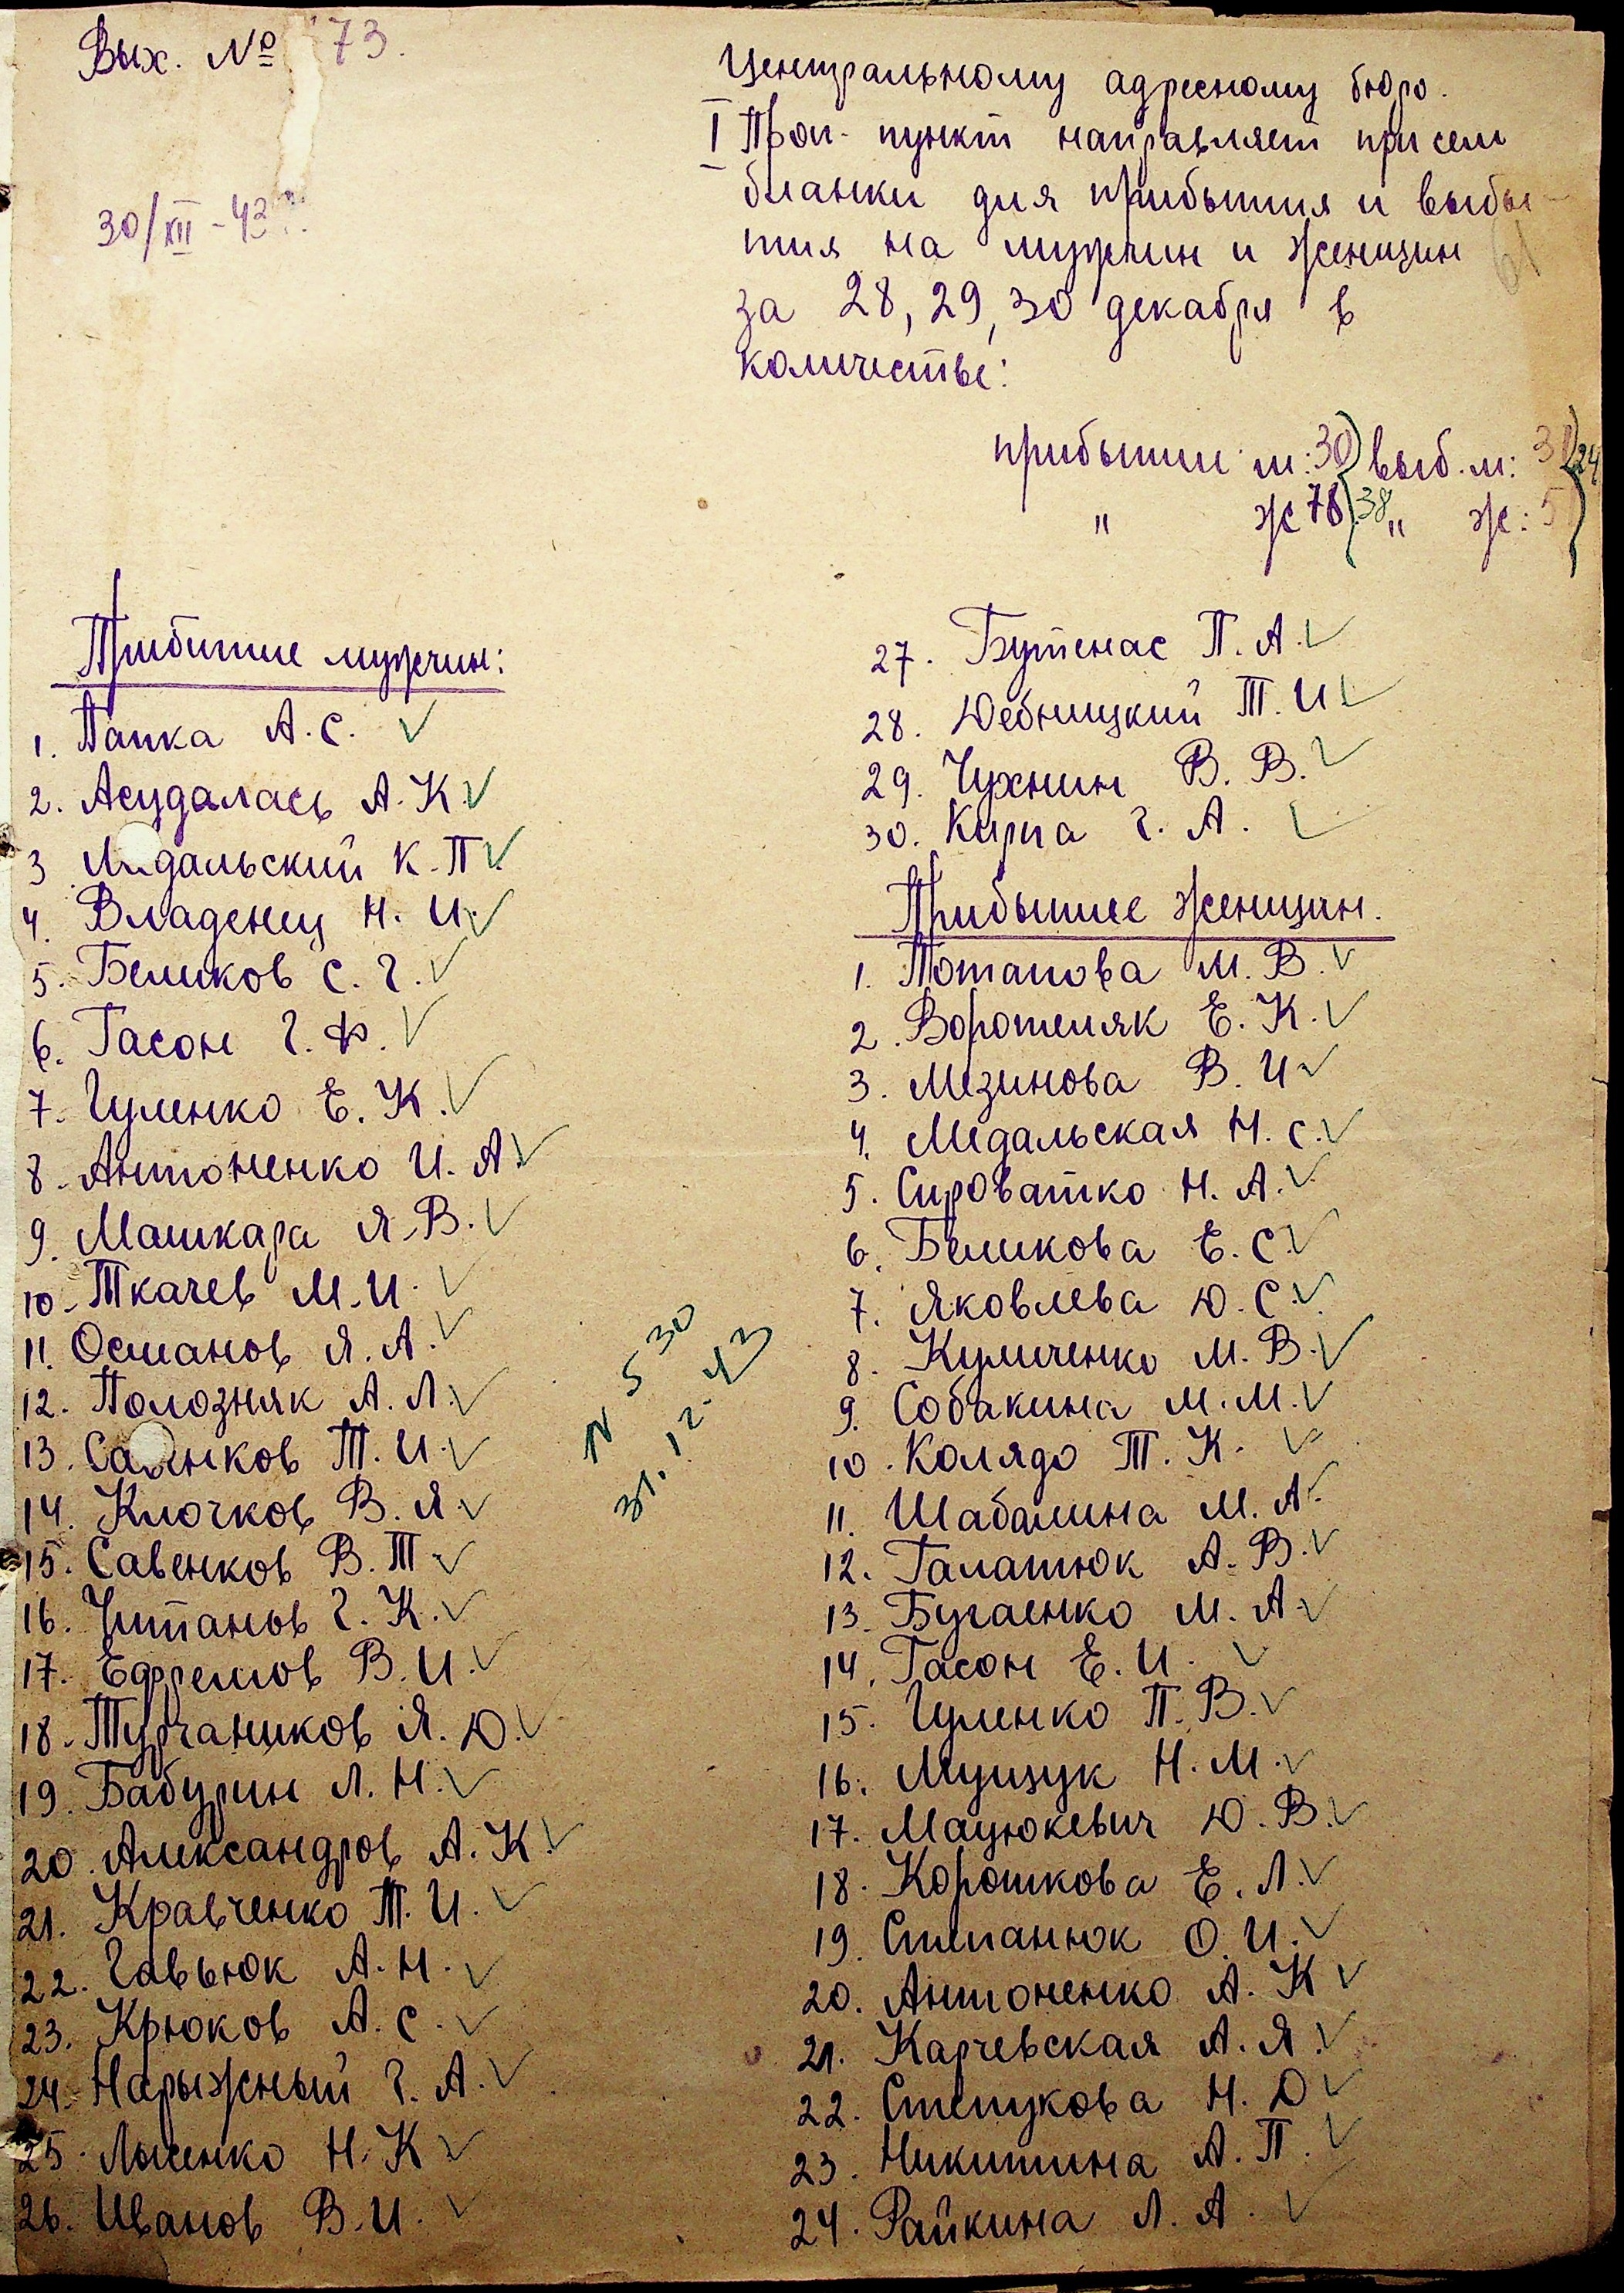 Вых. № 73.
30/XII - 43 г.
Центральному адресному бюро.
I Проп. пункт направляет при сем
бланки для прибытия и выбы-
тия на мужчин и женщин
за 28, 29, 30 декабря в
количестве:
прибытии м: 30 выб. м:
" ж 78 38 " ж: 5
24
61
Прибытие мужчин:
1. Папка А. С.
2. Асудалась А. К.
3 Медальский К. П.
4. Владенец Н. И.
5. Беликов С. Г.
6. Гасон Г. Ф.
7. Гуленко Е. К.
8. Антоненко И. А.
9. Машкара Я. В.
10. Ткачев М. И.
11. Османов Я. А.
12. Полозняк А. Л.
13. Савенков Т. И.
14. Клочков В. Я.
15. Савенков В. Т.
16. Читанов Г. К.
17. Ефремов В. И.
18. Турчаников Я. Ю.
19. Бабурин Л. Н.
20. Александров А. К.
21. Кравченко Т. И.
22. Гавьюк А. Н.
23. Крюков А. С.
24. Нарыжный Г. А.
25. Лысенко Н. К
26. Иванов В. И.
N 530
31. 12. 43
27. Бутенас П. А.
28. Дебницкий Т. И
29. Чухнин В. В.
30. Кирга Г. А.
Прибытие женщин.
1. Потапова М. В.
2. Воротеляк Е. К.
3. Мезинова В. И
4. Медальская Н. С.
5. Сироватко Н. А.
6. Беликова Е. С.
7. Яковлева Ю. С.
8. Куличенко М. В.
9. Собакина М. М.
10. Колядо Т. К.
11. Шабалина М. А.
12. Галатюк А. В.
13. Бугаенко М. А.
14. Гасон Е. И.
15. Гуленко П. В.
16. Мущук Н. М.
17. Мацюкевич Ю. В.
18. Корошкова Е. Л.
19. Степанюк О. И.
20. Антоненко А. К
21. Карчевская А. Я.
22. Степукова Н. Ю
23. Никитина А. П.
24. Райкина Л. А.